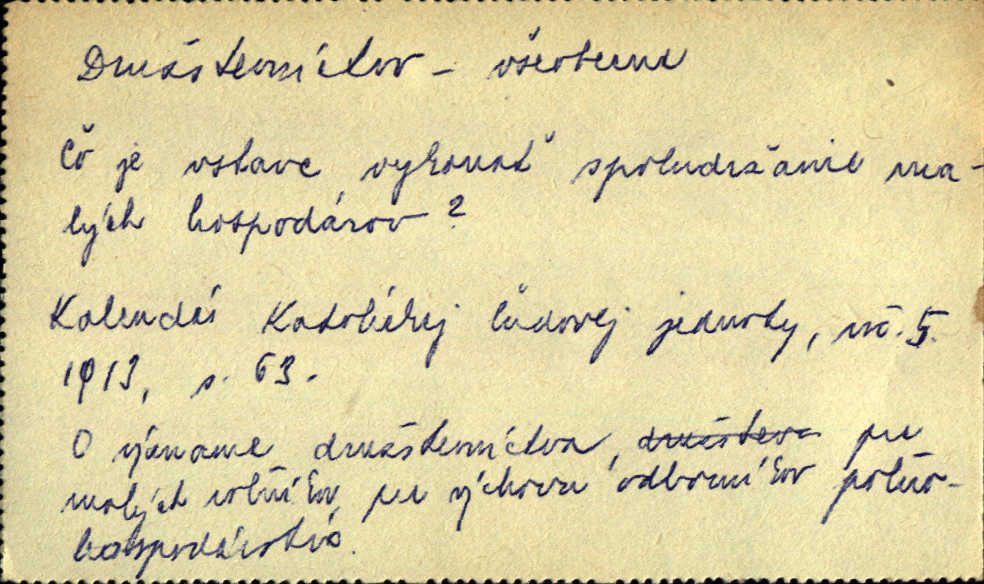 Družstevníctvo - všeobecne
Čo je vstave vykonať spoludržanie ma-
lých hospodárov?
Kalendár Katolíckej ľudovej jednoty, roč. 5.
1913, s. 63.
O význame družstevníctva, družstevn pre
malých roľníkov, pre výchovu odborníkov poľno-
hospodárstva.